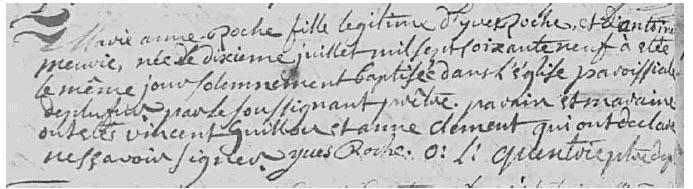 Marie anne Roche fille legitime d'yves Roche, et d'antoine
meuvic, née le dixieme juillet mil sept soixante neuf a etée
le même jour solemnement baptisée dans l'église paroissiale
de plufur par le soussignant prêtre. parain et maraine
ont etés vincent Guillou et anne clement qui ont declaré
ne sçavoir signer. yves Roche. o: L: